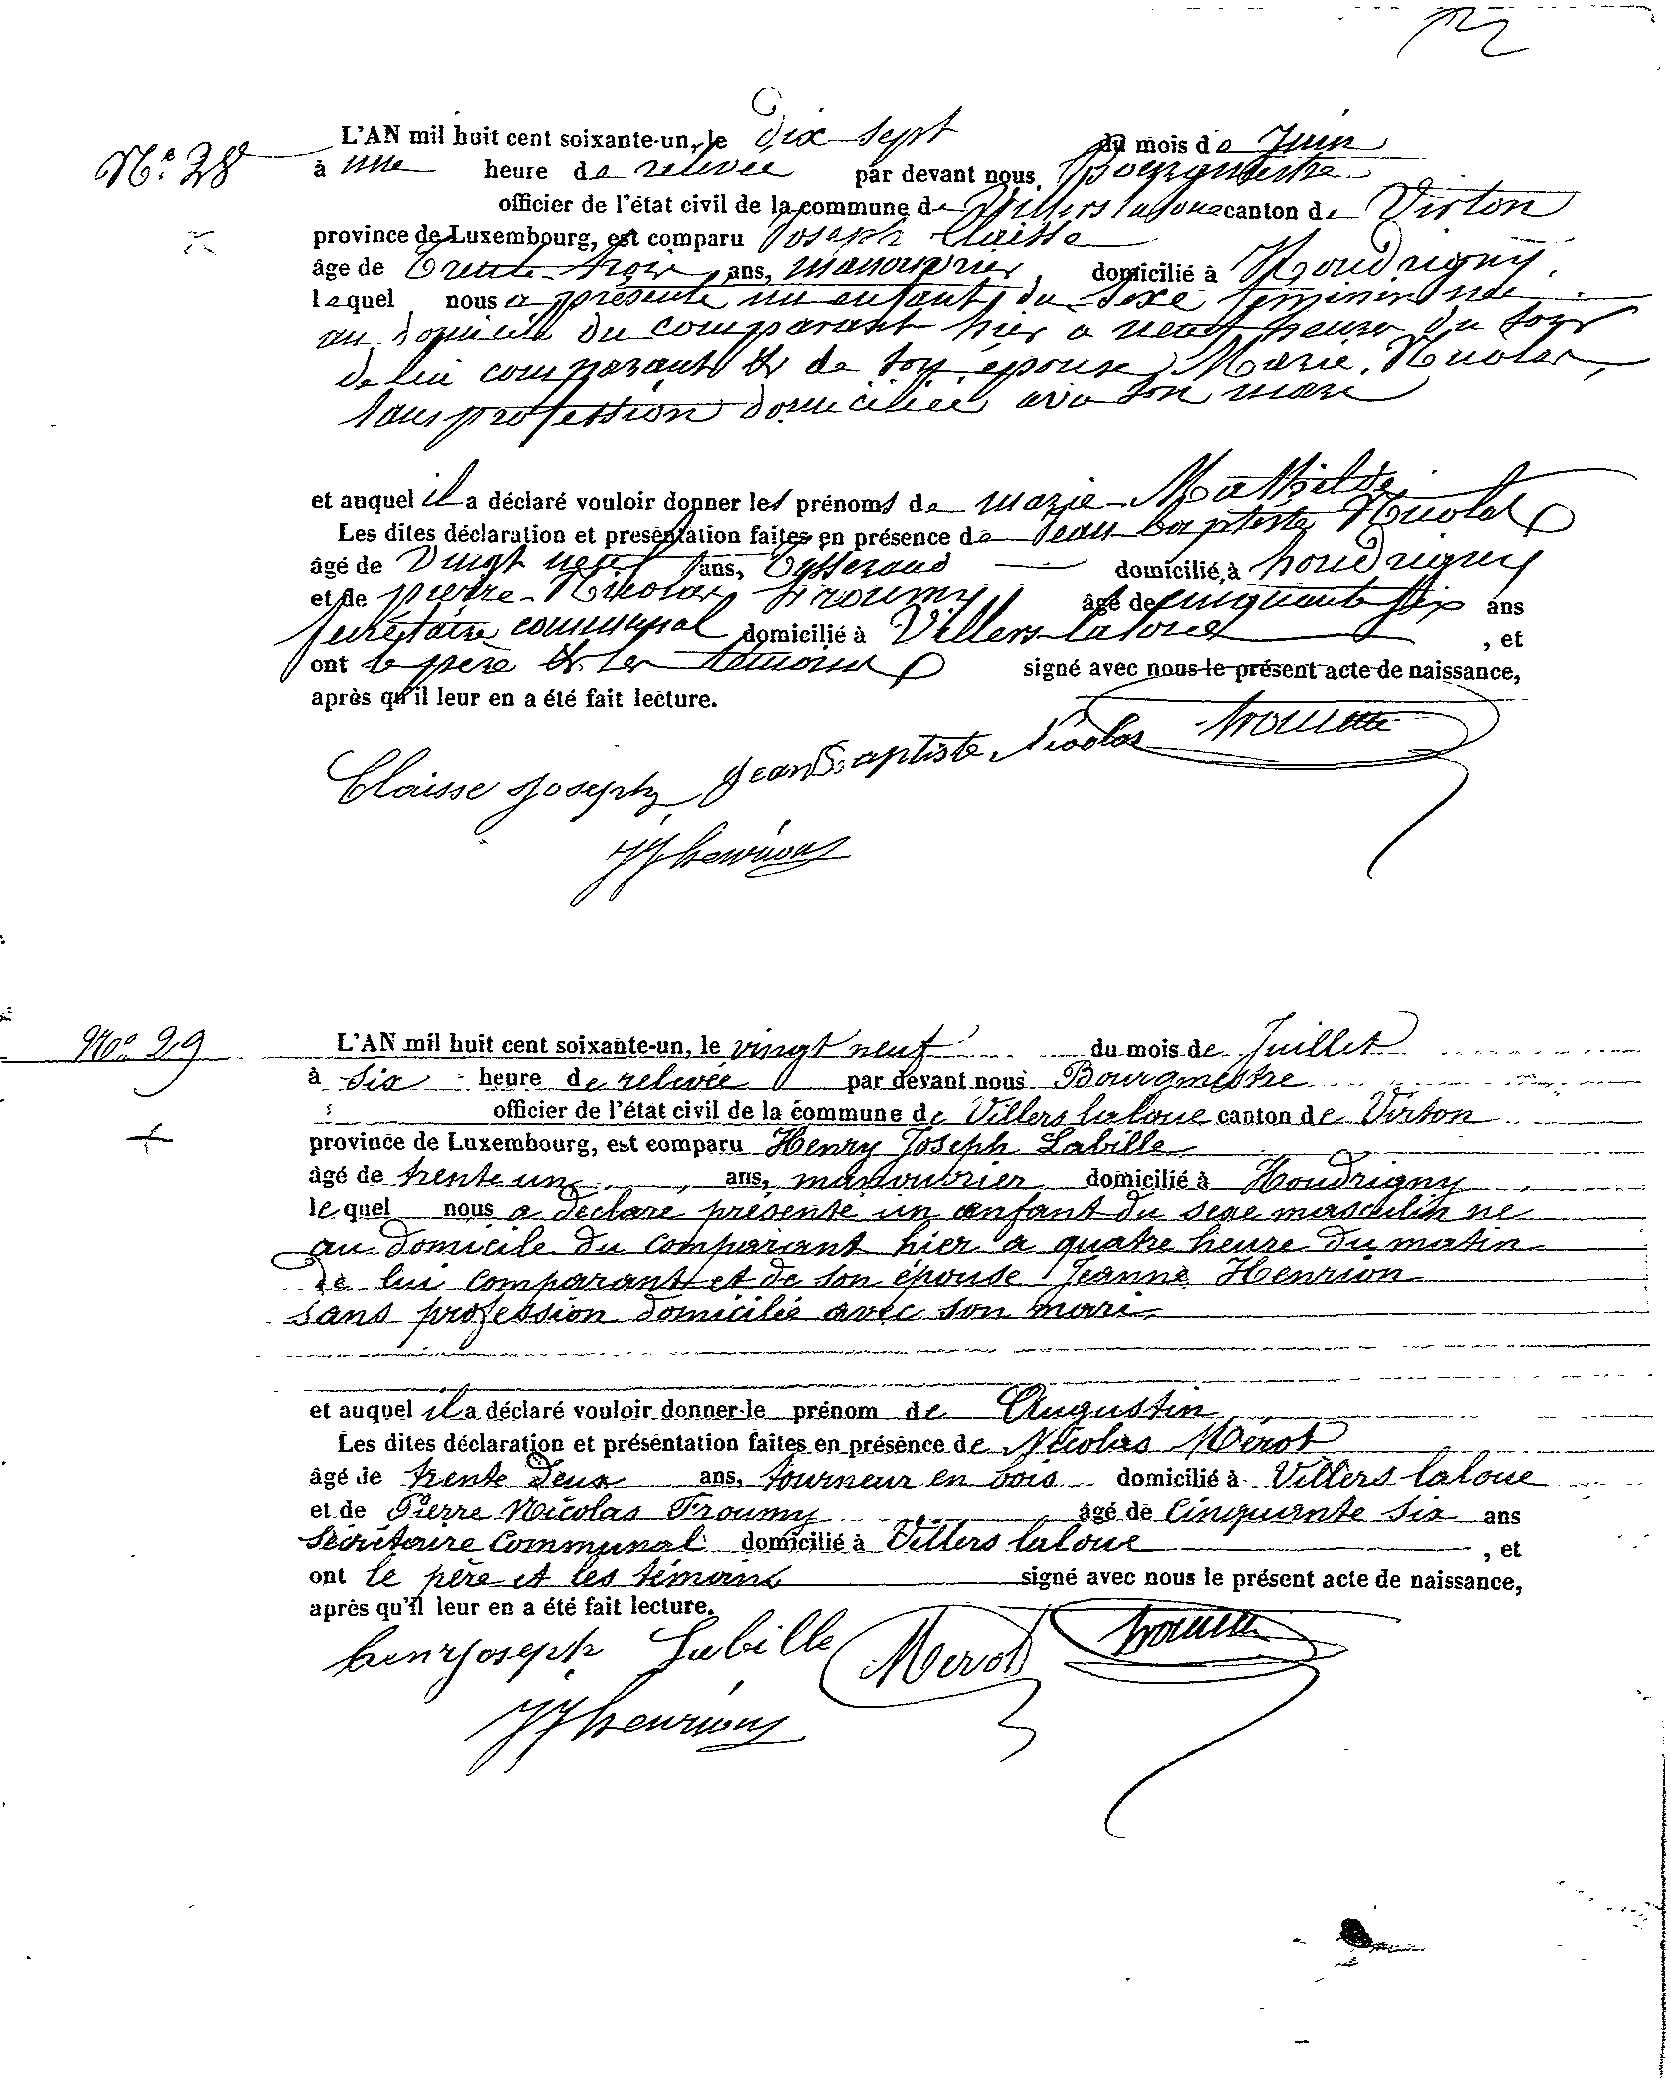 N° 28
L'AN mil huit cent soixante-un, le dix sept du mois de Juin
à une heure de relevée par devant nous Bourgmestre
officier de l'état civil de la commune de Villers laloue canton de Virton
province de Luxembourg, est comparu Joseph Claisse
âge de trente-trois ans, manouvrier, domicilié à Houdrigny,
lequel nous a présenté un enfant du sexe féminin née
au domicile du comparant hier a neuf heure du soir
de lui comparant & de son épouse Marie Nicolas,
sans profession domiciliée avec son mari
et auquel il a déclaré vouloir donner les prénoms de marie-Mathilde
Les dites déclaration et presentation faites en présence de Jean baptiste Nicolas
âgé de vingt neuf ans, Tisserand domicilié à houdrigny
et de pierre-Nicolas Froumy âgé de cinquante six ans
secrétaire communal domicilié à Villers-laloue , et
ont le père & les témoins signé avec nous le présent acte de naissance,
après qu'il leur en a été fait lecture.
Claisse Joseph Jean Baptiste Nicolas
N° 29
L'AN mil huit cent soixante-un, le vingt neuf du mois de Juillet
à six heure de relevée par devant nous Bourgmestre
officier de l'état civil de la commune de Villers laloue canton de Virton
province de Luxembourg, est comparu Henry Joseph Labille
âgé de trente un ans, manouvrier domicilié à Houdrigny
lequel nous a déclare présente un enfant du sexe masculin né
au domicile du comparant hier a quatre heure du matin
de lui comparant et de son épouse Jeanne Henrion
sans profession domicilié avec son mari
et auquel il a déclaré vouloir donner le prénom de Augustin
Les dites déclaration et présentation faites en présence de Nicolas Mérot
âgé de trente deux ans, tourneur en bois domicilié à Villers laloue
et de Pierre Nicolas Froumy âgé de Cinquante six ans
Secrétaire Communal domicilié à Villers laloue , et
ont le père et les témoins signé avec nous le présent acte de naissance,
après qu'il leur en a été fait lecture.
henry Joseph Labille Merot